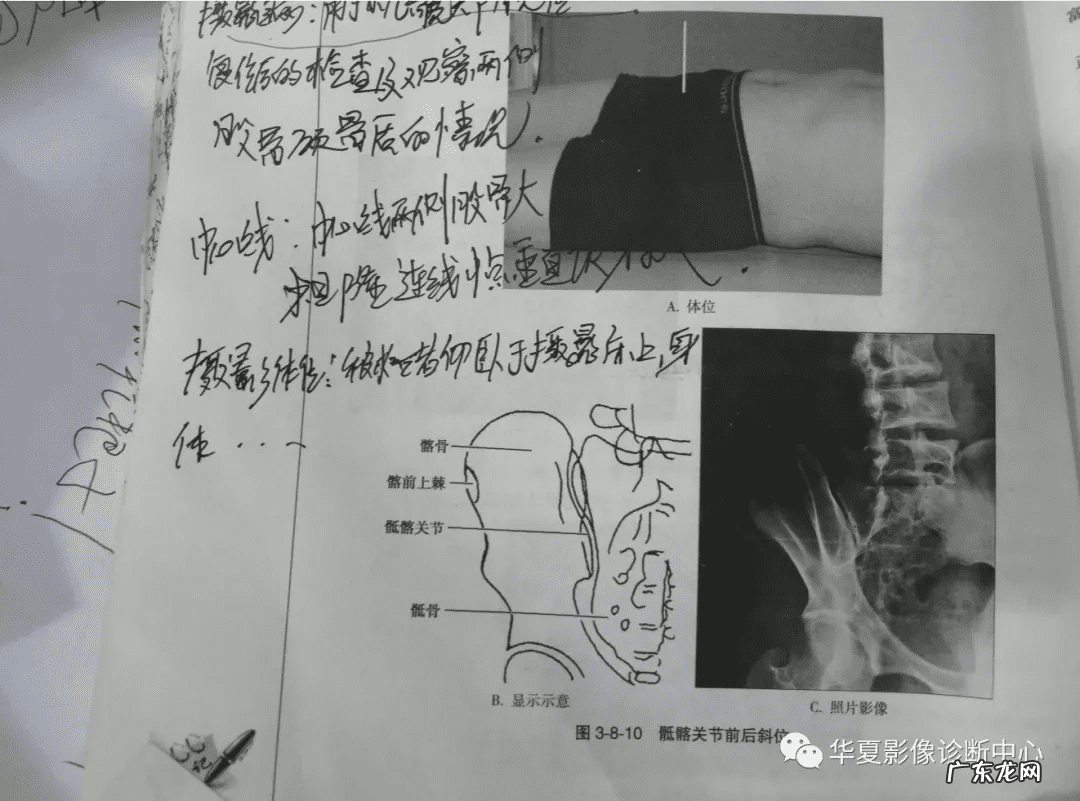 复位后的检查及观察两侧
股骨颈骨后的情况).
中心线:中心线两侧股骨大
粗隆连线
摄影体位:被检者仰卧于摄影床上,身
体...
A. 体位
髂骨
髂前上棘
骶髂关节
骶骨
B. 显示示意
C. 照片影像
图 3-8-10 骶髂关节前后斜位
华夏影像诊断中心
广东龙网